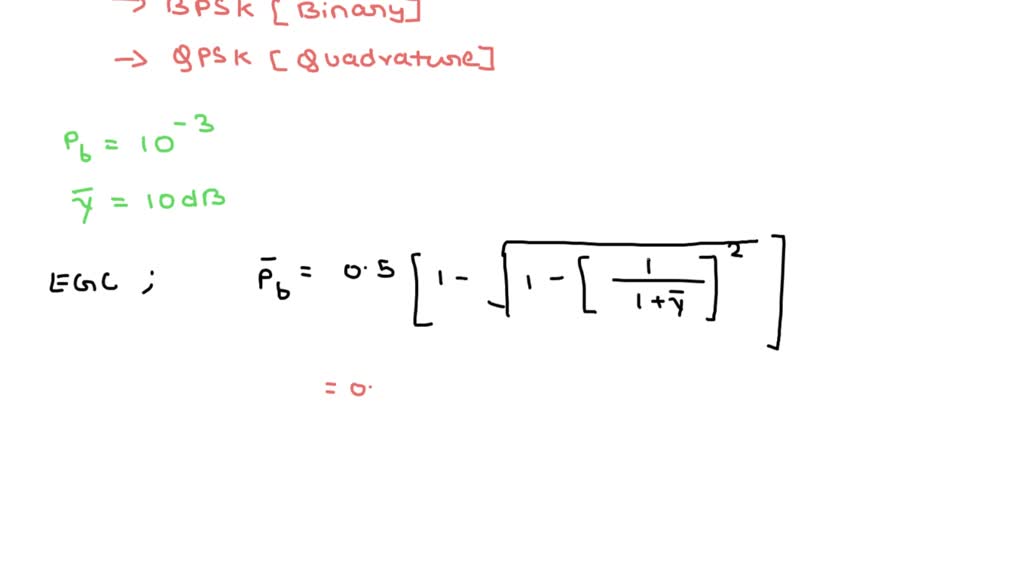 → BPSK [Binary]
→ QPSK [Quadrature]
P_b = 10^{-3}
γ̅ = 10dB
EGC ; P̅_b = 0.5 [ 1 - √( 1 - [ 1 / (1+γ̅) ]^2 ) ]
= 0.